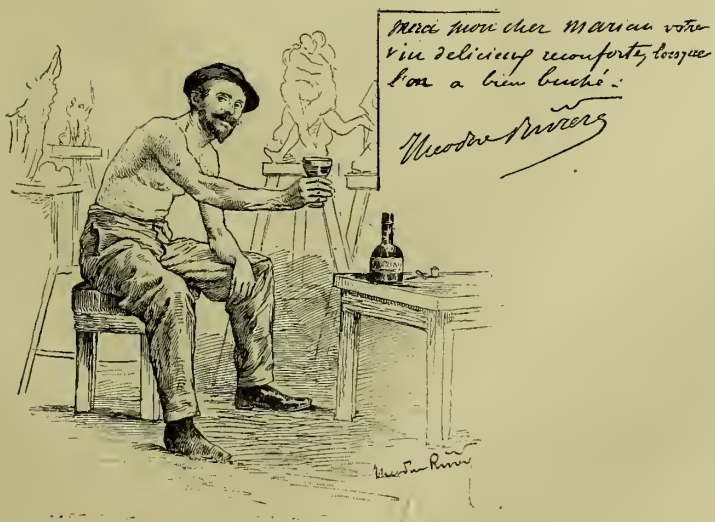 merci mon cher Mariani votre
vin delicieux reconforte, lorsque
l'on a bien buché :
Theodore Riviere
MARIANI
Theodore Riviere